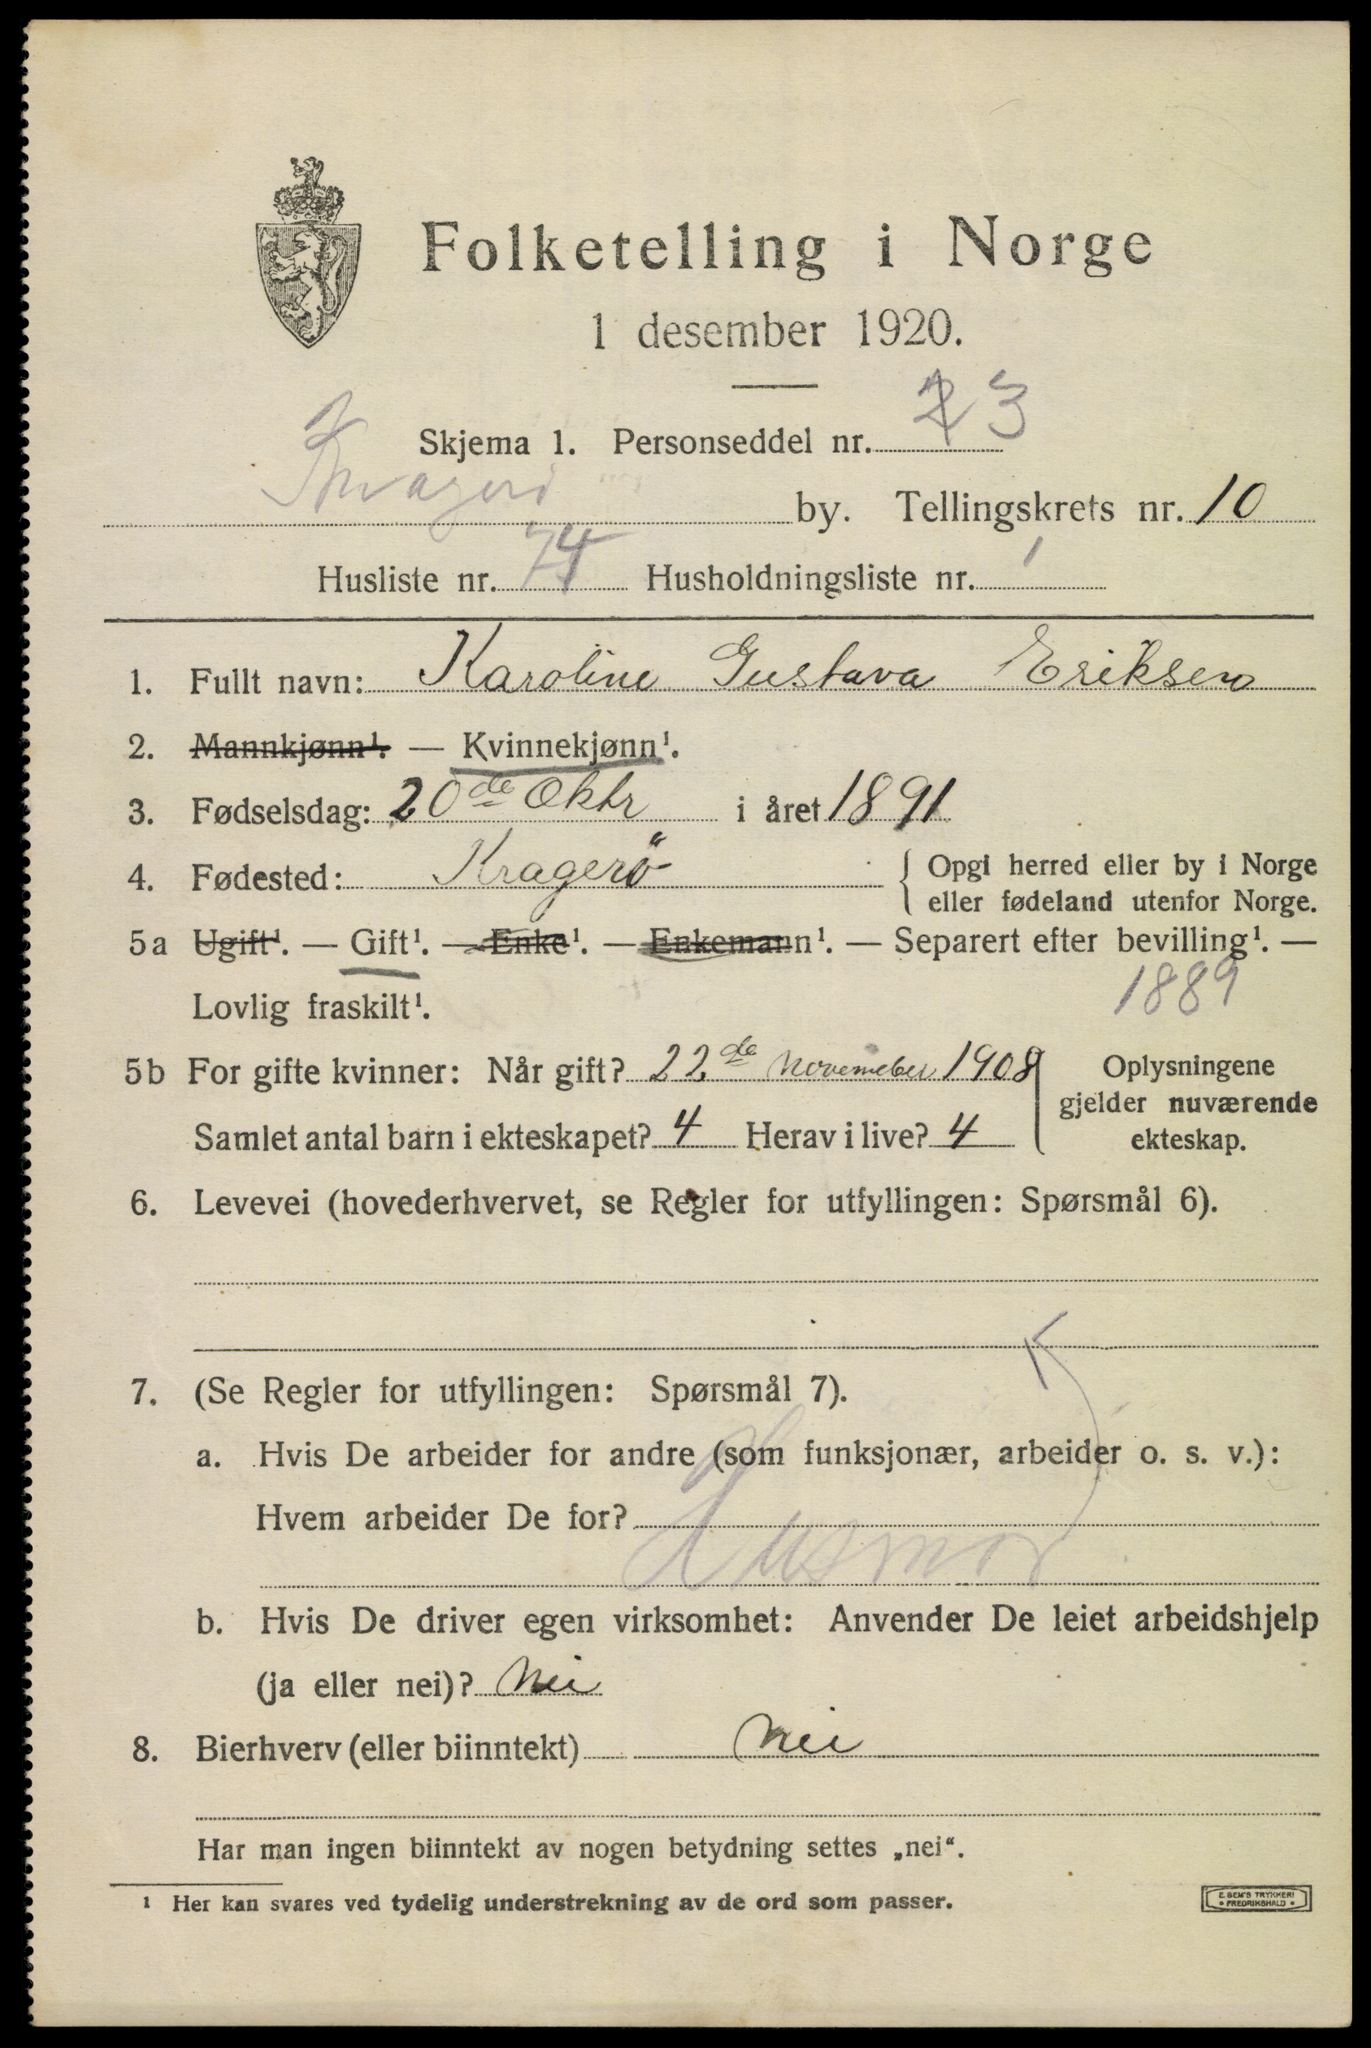 Folketelling i Norge
1 desember 1920.
Skjema 1. Personseddel nr. 2 3
Kragerø by. Tellingskrets nr. 10
Husliste nr. 74 Husholdningsliste nr. 1
1. Fullt navn: Karoline Gustava Eriksen
2. Mannkjønn¹. — Kvinnekjønn¹.
3. Fødselsdag: 20de Oktr i året 1891
4. Fødested: Kragerö { Opgi herred eller by i Norge
eller fødeland utenfor Norge.
5a Ugift¹. — Gift¹. — Enke¹. — Enkemann¹. — Separert efter bevilling¹. —
Lovlig fraskilt¹. 1889
5b For gifte kvinner: Når gift? 22de November 1908 } Oplysningene
gjelder nuværende
Samlet antal barn i ekteskapet? 4 Herav i live? 4 ekteskap.
6. Levevei (hovederhvervet, se Regler for utfyllingen: Spørsmål 6).
7. (Se Regler for utfyllingen: Spørsmål 7).
a. Hvis De arbeider for andre (som funksjonær, arbeider o. s. v.):
Hvem arbeider De for?
Husmor
b. Hvis De driver egen virksomhet: Anvender De leiet arbeidshjelp
(ja eller nei)? Nei
8. Bierhverv (eller biinntekt) Nei
Har man ingen biinntekt av nogen betydning settes „nei“.
¹ Her kan svares ved tydelig understrekning av de ord som passer.
E. SEM'S TRYKKERI
* FREDRIKSHALD *